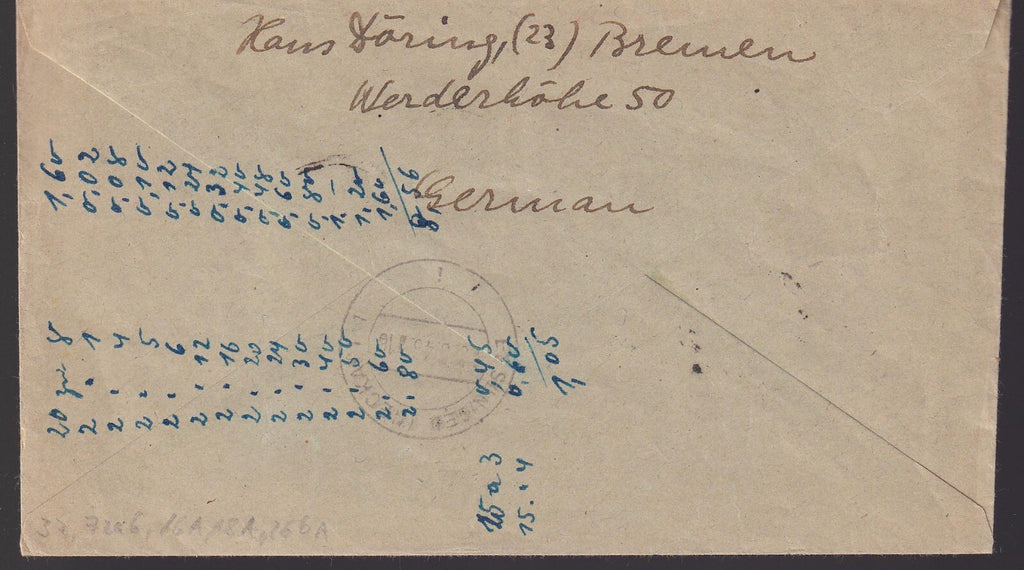 Hans Döring, (23) Bremen
Werderhöhe 50
German
20 zu 8 1,60
2 . 1 0,02
2 " 4 0,08
2 " 5 0,10
2 " 6 0,12
2 " 12 0,24
2 " 16 0,32
2 " 20 0,40
2 " 24 0,48
2 " 30 0,60
2 " 40 0,80
2 " 50 1.—
2 " 60 1.20
2 " 80 1,60
8,56
15 a 3 0,45
15 " 4 0,60
1,05
16A, 18A